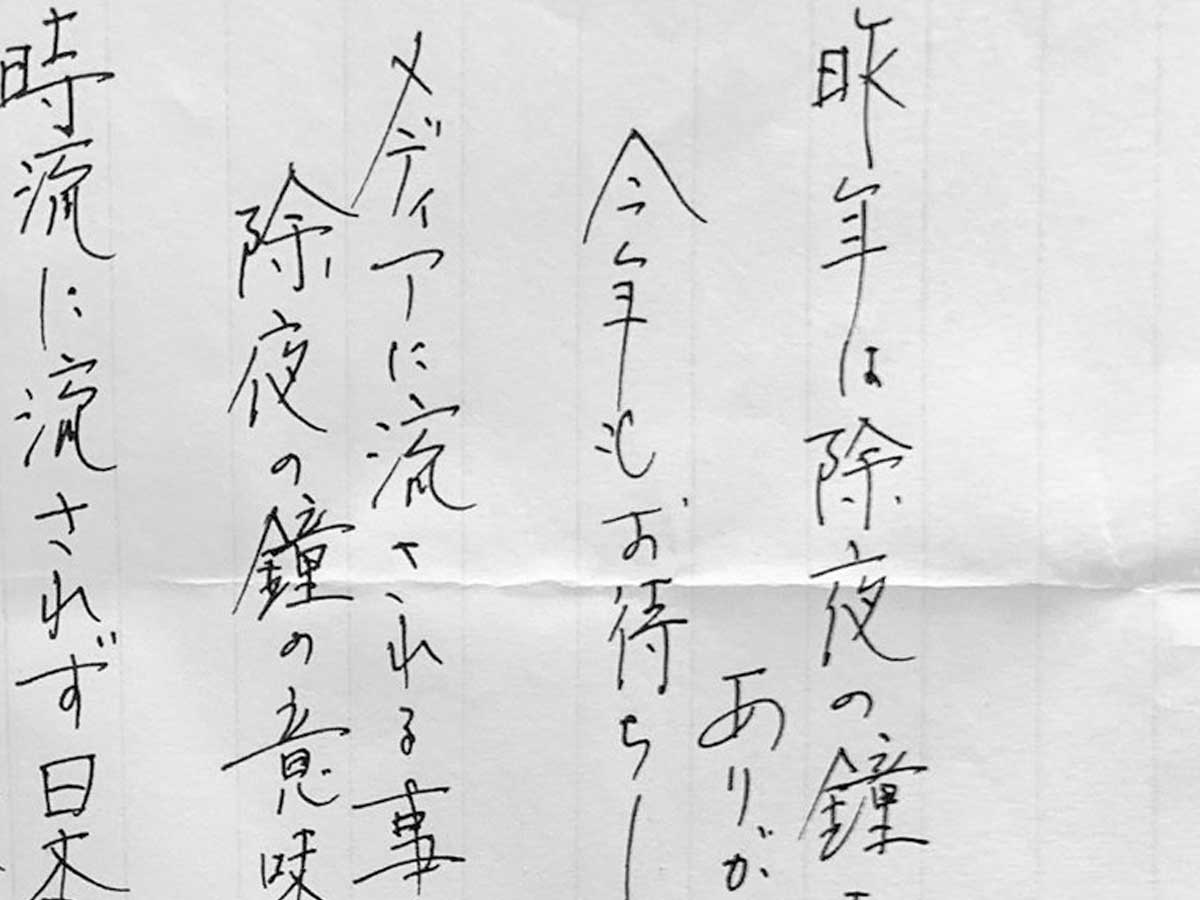 昨年は除夜の鐘
ありが
今年もお待ちし
メディアに流される事
除夜の鐘の意味
時流に流されず日本